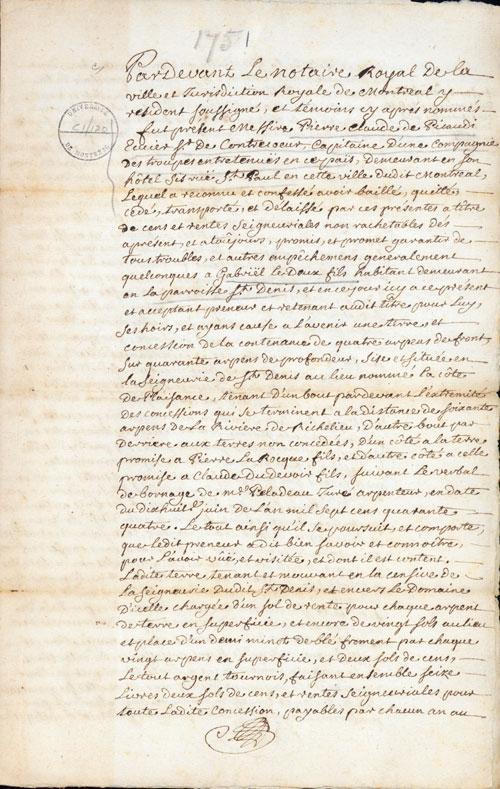 1751
UNIVERSITÉ
C1/120
DE MONTRÉAL
Par Devant Le Notaire Royal De la
ville et Jurisdiction Royale de Montreal y
resident soussigné, et temoins cy apres nommés
fut present Messire Pierre Claude de Pécaudi
Ecuier Sr. de Contrecoeur, Capitaine d'une Compagnie
des troupes entretenües en ce païs, Demeurant en son
hôtel Sis rüe St. Paul en cette ville dudit Montreal,
Lequel a reconnu et confessé avoir baillé, quitté
cédé, transporté, et délaissé par ces présentes a titre
de cens et rentes Seigneuriales non rachetables dés
apresent, et a toûjours, promis, et promet garantir de
tous troubles, et autres empêchemens generalement
quelconques a Gabriël le Doux fils habitant demeurant
en La parroisse St. Denis, et en ce jour icy a ce present
et acceptant preneur et retenant audit titre pour Luy,
Ses hoirs, et ayans cause a L'avenir une terre, et
concession de la contenance de quatre arpens de front
Sur quarante arpens de profondeur, Sise et située en
la Seigneurie de St. Denis au lieu nommé la côte
de Plaisance, tenant d'un bout par devant L'extremité
des concessions qui se terminent a la distance de soixante
arpens de La Riviere de Richelieu, D'autre bout par
derriere aux terres non concedées, D'un côté a la terre
promise a Pierre La Rocque fils, et d'autre côté a celle
promise a Claude Dudevoir fils, suivant Le verbal
de bornage de Mr. Peladeau Juré arpenteur, en date
du dixhuit juin de L'an mil Sept cens quarante
quatre. Le tout ainsi qu'il se poursuit, et comporte,
que Ledit preneur a dit bien savoir et connoître,
pour L'avoir vûë, et visitée, et dont il est content.
Ladite terre tenant et mouvant en la censive de
La Seigneurie Dudit St. Denis, et envers Le Domaine
D'icelle chargée d'un sol de rente pour chaque arpent
de terre en superficie, et encore de vingt sols au lieu
et place d'un demi minot de blé froment par chaque
vingt arpens en superficie, et deux sols de cens,
Le tout argent tournois, faisant ensemble seize
Livres deux sols de cens, et rentes Seigneuriales pour
toute Ladite Concession, payables par chacun an au